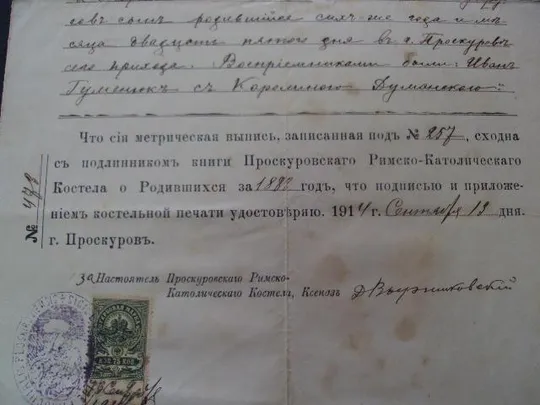 совъ сынъ родившійся сихъ же года и мѣ-
сяца двадцать пятого дня въ г. Проскуровѣ
сего прихода. Воспріемниками были: Иванъ
Гуменюкъ съ Каролиною Думанскою"
Что сія метрическая выпись, записанная подъ № 257, сходна
съ подлинникомъ книги Проскуровскаго Римско-Католическаго
Костела о Родившихся за 188 годъ, что подписью и приложе-
ніемъ костельной печати удостовѣряю. 1914 г. Сентября 19 дня.
г. Проскуровъ.
№ 478
За Настоятель Проскуровскаго Римско-
Католическаго Костела, Ксендзъ
75 КОП